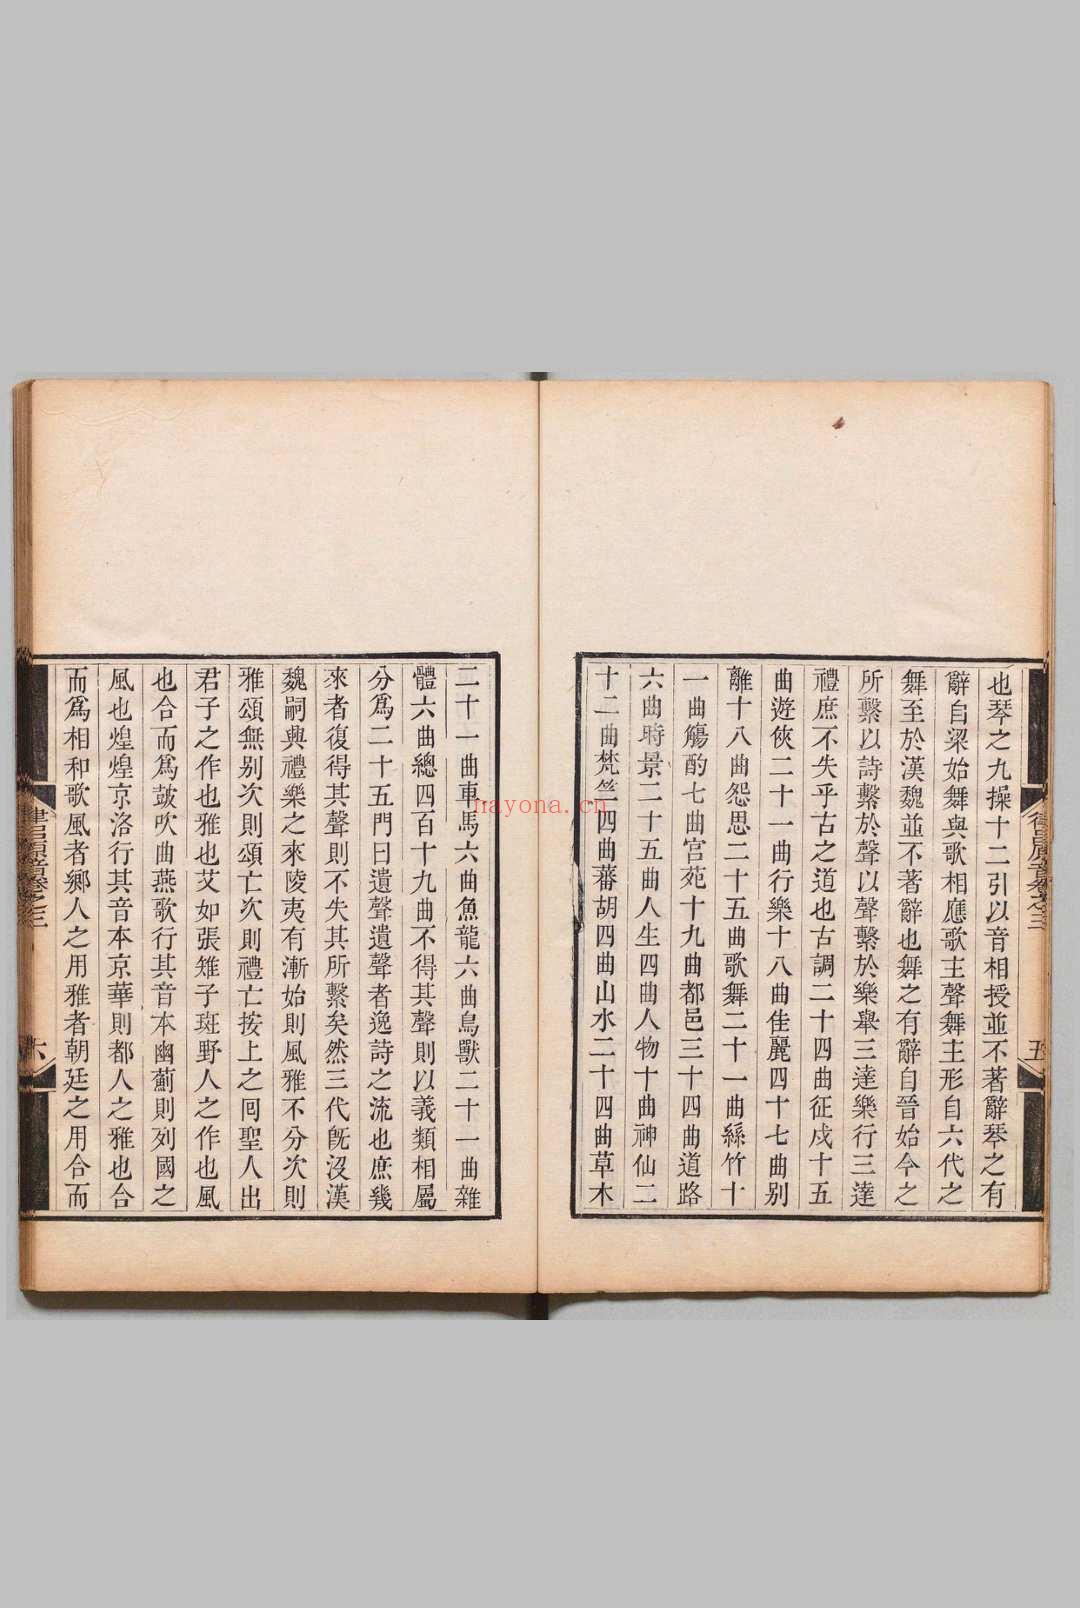 也琴之九操十二引以音相授並不著辭琴之有
辭自梁始舞與歌相應歌主聲舞主形自六代之
舞至於漢魏並不著辭也舞之有辭自晉始今之
所繫以詩繫於聲以聲繫於樂舉三達樂行三達
禮庶不失乎古之道也古調二十四曲征戍十五
曲遊俠二十一曲行樂十八曲佳麗四十七曲别
離十八曲怨思二十五曲歌舞二十一曲絲竹十
一曲觴酌七曲宮苑十九曲都邑三十四曲道路
六曲時景二十五曲人生四曲人物十曲神仙二
十二曲梵竺四曲蕃胡四曲山水二十四曲草木
二十一曲車馬六曲魚龍六曲鳥獸二十一曲雜
體六曲總四百十九曲不得其聲則以義類相屬
分爲二十五門曰遺聲遺聲者逸詩之流也庶幾
來者復得其聲則不失其所繫矣然三代旣沒漢
魏嗣興禮樂之來陵夷有漸始則風雅不分次則
雅頌無别次則頌亡次則禮亡按上之囘聖人出
君子之作也雅也艾如張雉子班野人之作也風
也合而爲鼓吹曲燕歌行其音本幽薊則列國之
風也煌煌京洛行其音本京華則都人之雅也合
而爲相和歌風者鄉人之用雅者朝廷之用合而
律呂原音卷之三
五
律呂原音卷之三
六
nayona.cn